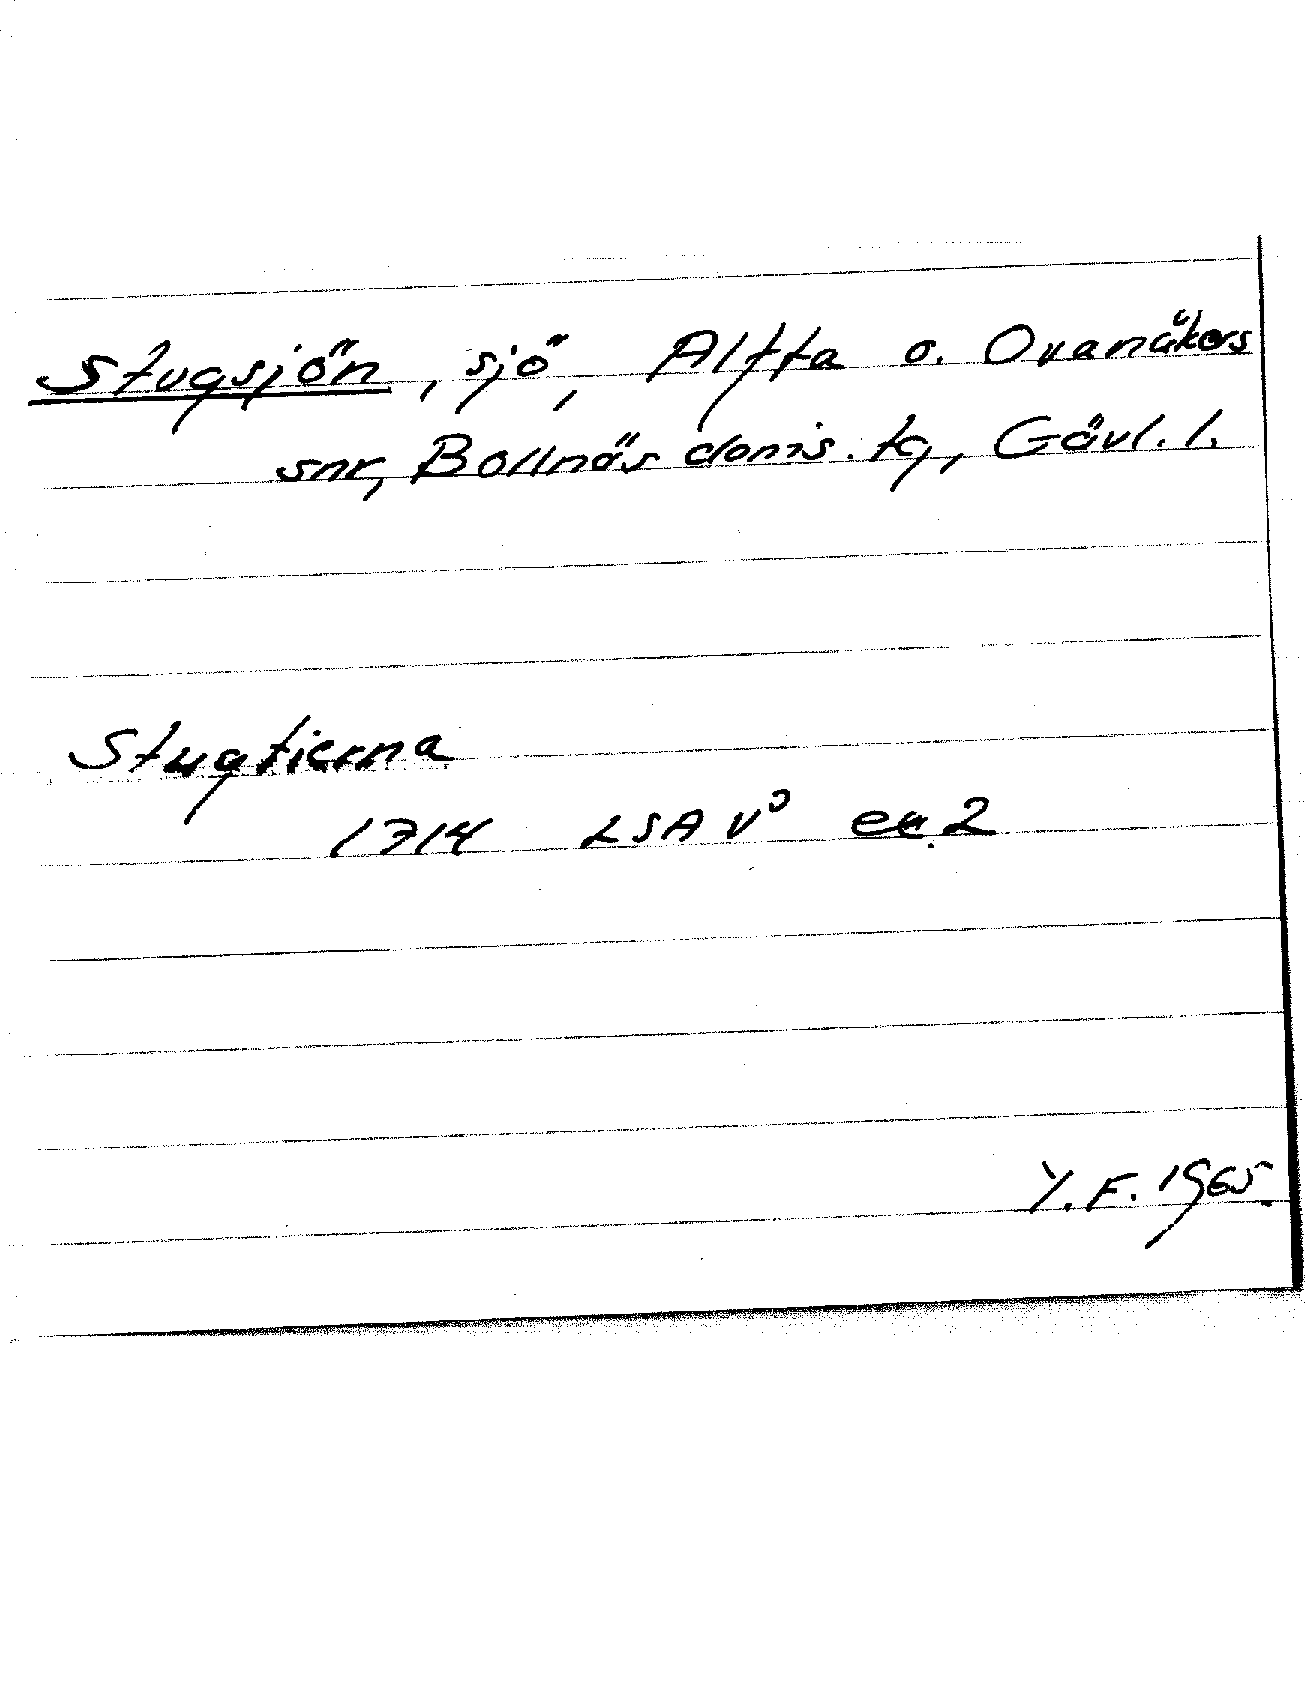 Stugsjön, sjö, Alfta o. Ovanåkers
snr, Bollnäs doms. tg, Gävl. l.
Stugtierna
1714 LSA V° 2
Y. F. 1965.